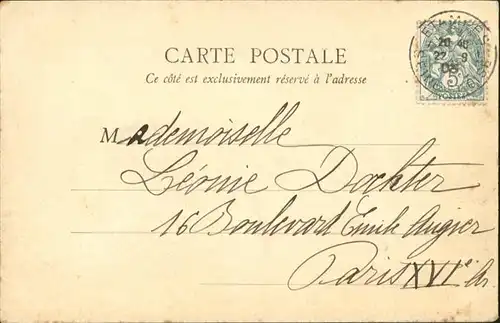 CARTE POSTALE
Ce côté est exclusivement réservé à l'adresse
Mademoiselle
Léonie Dochter
16 Boulevard Emile Augier
Paris XVIe Ar.
20 40
27 9
5